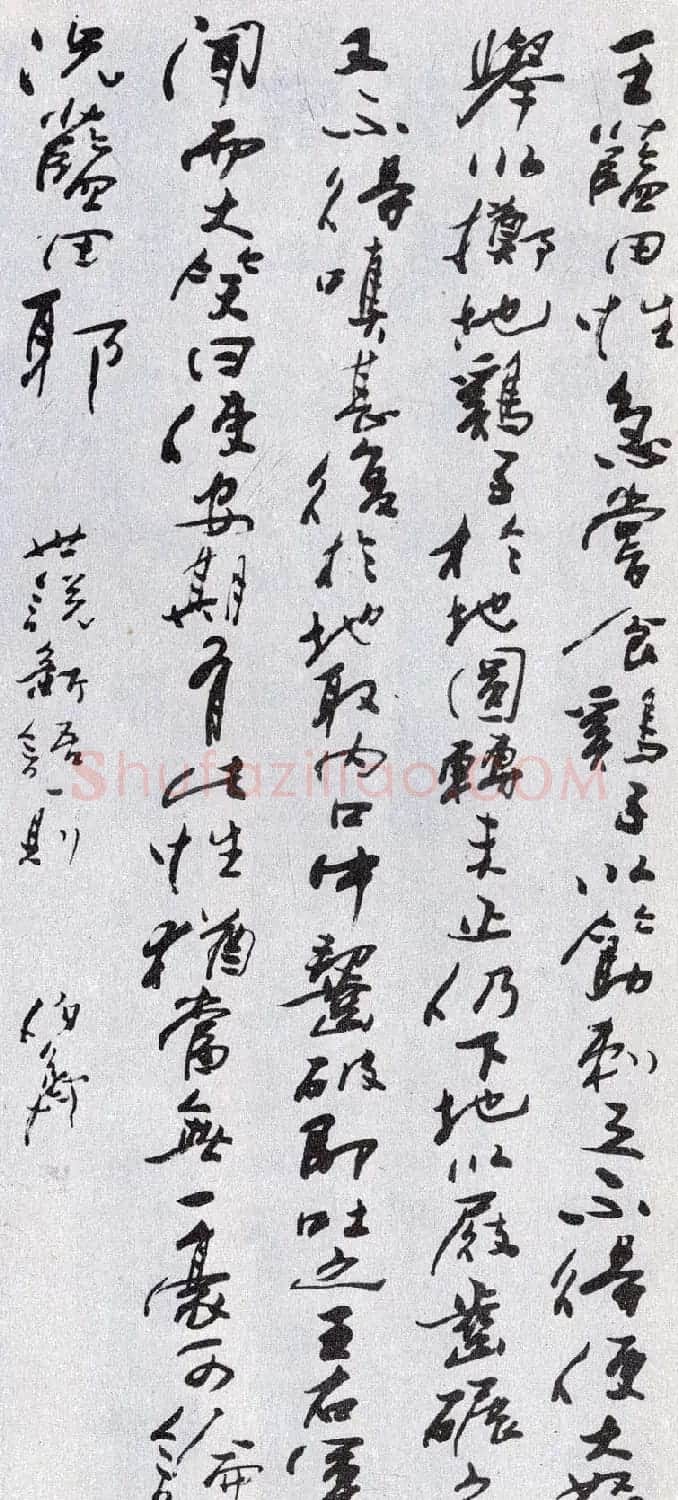 王藍田性急嘗食鷄子以筯刺之不得便大怒
舉以擲地鷄子於地圓轉未止仍下地以屐齒碾之
又不得嗔甚復於地取內口中齧破即吐之王右軍
聞而大笑曰使安期有此性猶當無一豪可論
況藍田耶
世説新語一則
Shufaziliao.COM